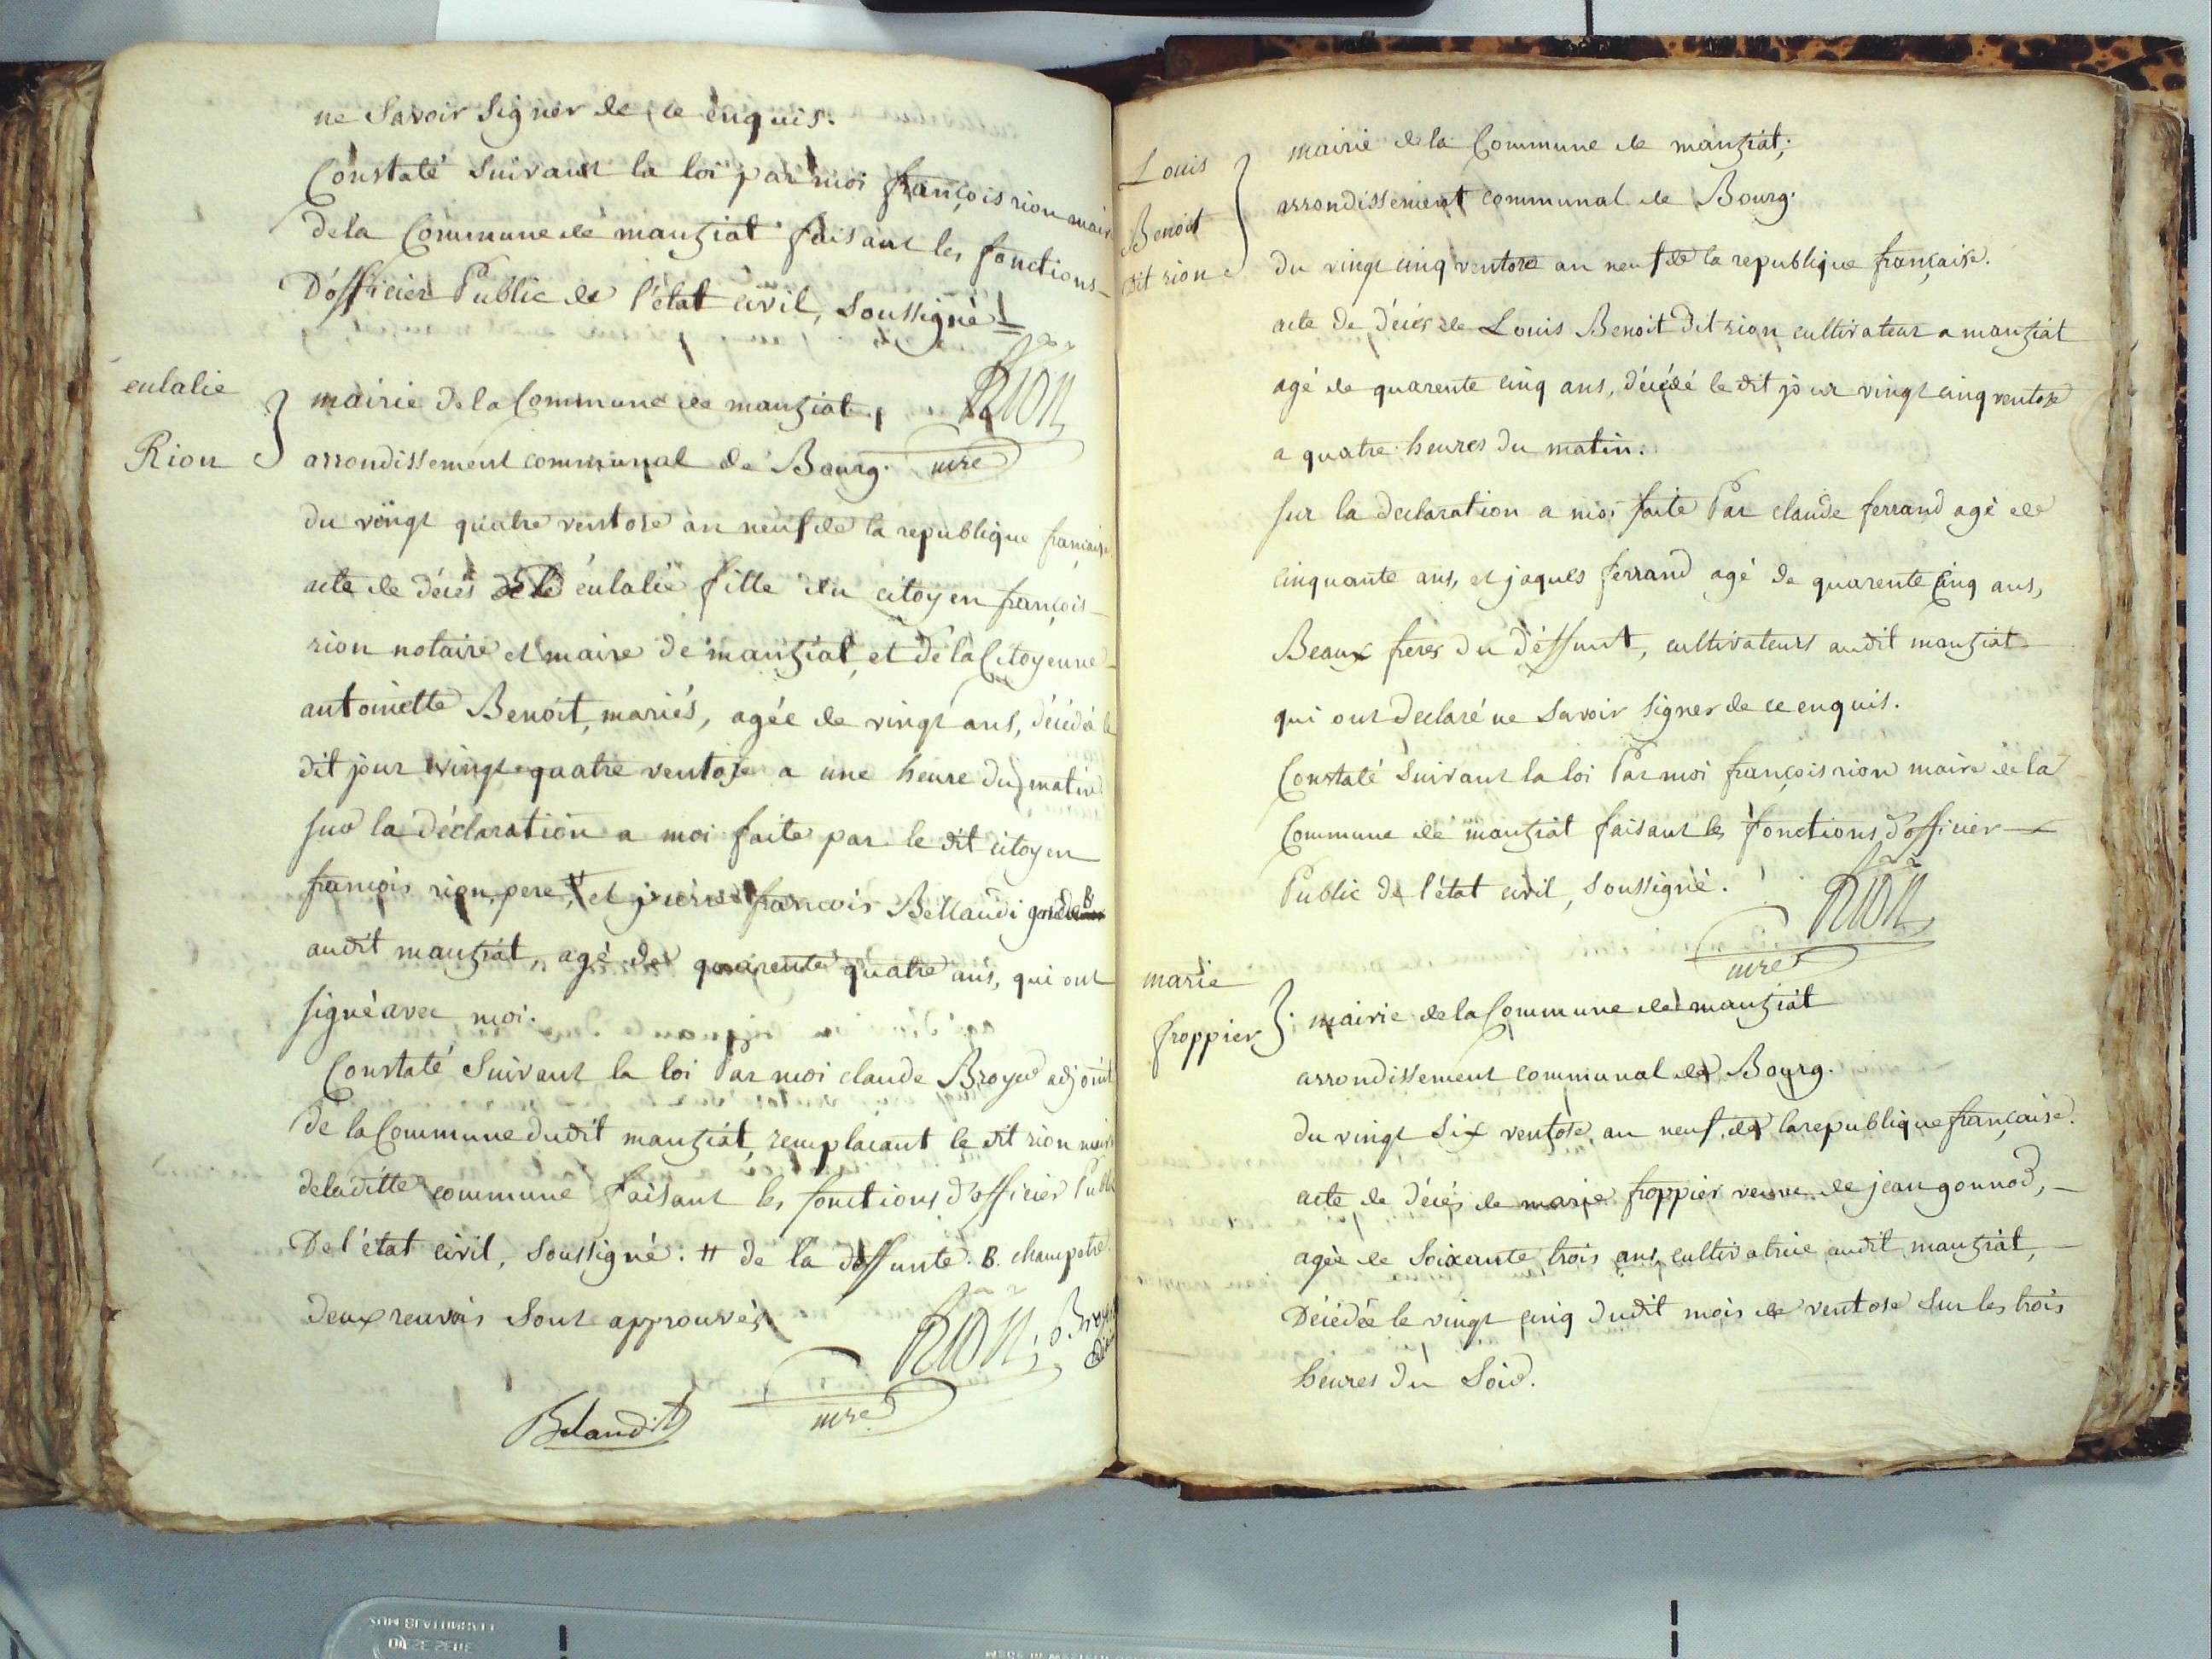 ne Savoir Signer de ce enquis.
Constaté Suivant la loi par moi françois rion maire
dela Commune de manziat faisant les fonctions
D'officier Public de l'état civil, Soussigné
Rion
mre
eulalie
Rion
mairie dela Commune de manziat,
arrondissement communal de Bourg.
du vingt quatre ventose an neuf de la republique française
acte de décès de eulalie fille du citoyen françois
rion notaire et maire de manziat, et de la Citoyenne
antoinette Benoit, mariés, agée de vingt ans, décédé le
dit jour vingt quatre ventose a une heure du matin
sur la déclaration a moi faite par le dit citoyen
françois rion, pere, # et françois Bellaudi garde B
audit manziat, agé de quarente quatre ans, qui ont
signé avec moi.
Constaté Suivant la loi Par moi claude Broyer adjoint
de la Commune dudit manziat, remplacant le dit rion maire
deladitte commune faisant les fonctions d'officier Public
De l'état civil, Soussigné. # de la deffunte. B. champetre.
deux renvois Sont approuvés
Rion
mre
Belaudit
Louis
Benoit
dit rion
mairie dela Commune de manziat;
arrondissement communal de Bourg.
du vingt cinq ventose an neuf de la republique française.
acte de décès de Louis Benoit dit rion cultivateur a manziat
agé de quarente cinq ans, décédé le dit jour vingt cinq ventose
a quatre heures du matin.
sur la declaration a moi faite Par claude ferrand agé de
cinquante ans, et jaques ferrand agé de quarente cinq ans,
Beaux freres du deffunt, cultivateurs audit manziat
qui ont declaré ne Savoir signer de ce enquis.
Constaté Suivant la loi Par moi françois rion maire dela
Commune de manziat faisant les fonctions d'officier
Public de l'état civil, Soussigné.
Rion
mre
marie
froppier
mairie dela Commune de manziat
arrondissement communal de Bourg.
du vingt Six ventose, an neuf, de la republique française.
acte de décès de marie froppier veuve de jean gonnod,
agée de Soixante trois ans, cultivatrice audit manziat,
Décédée le vingt cinq dudit mois de ventose Sur les trois
heures du Soir.